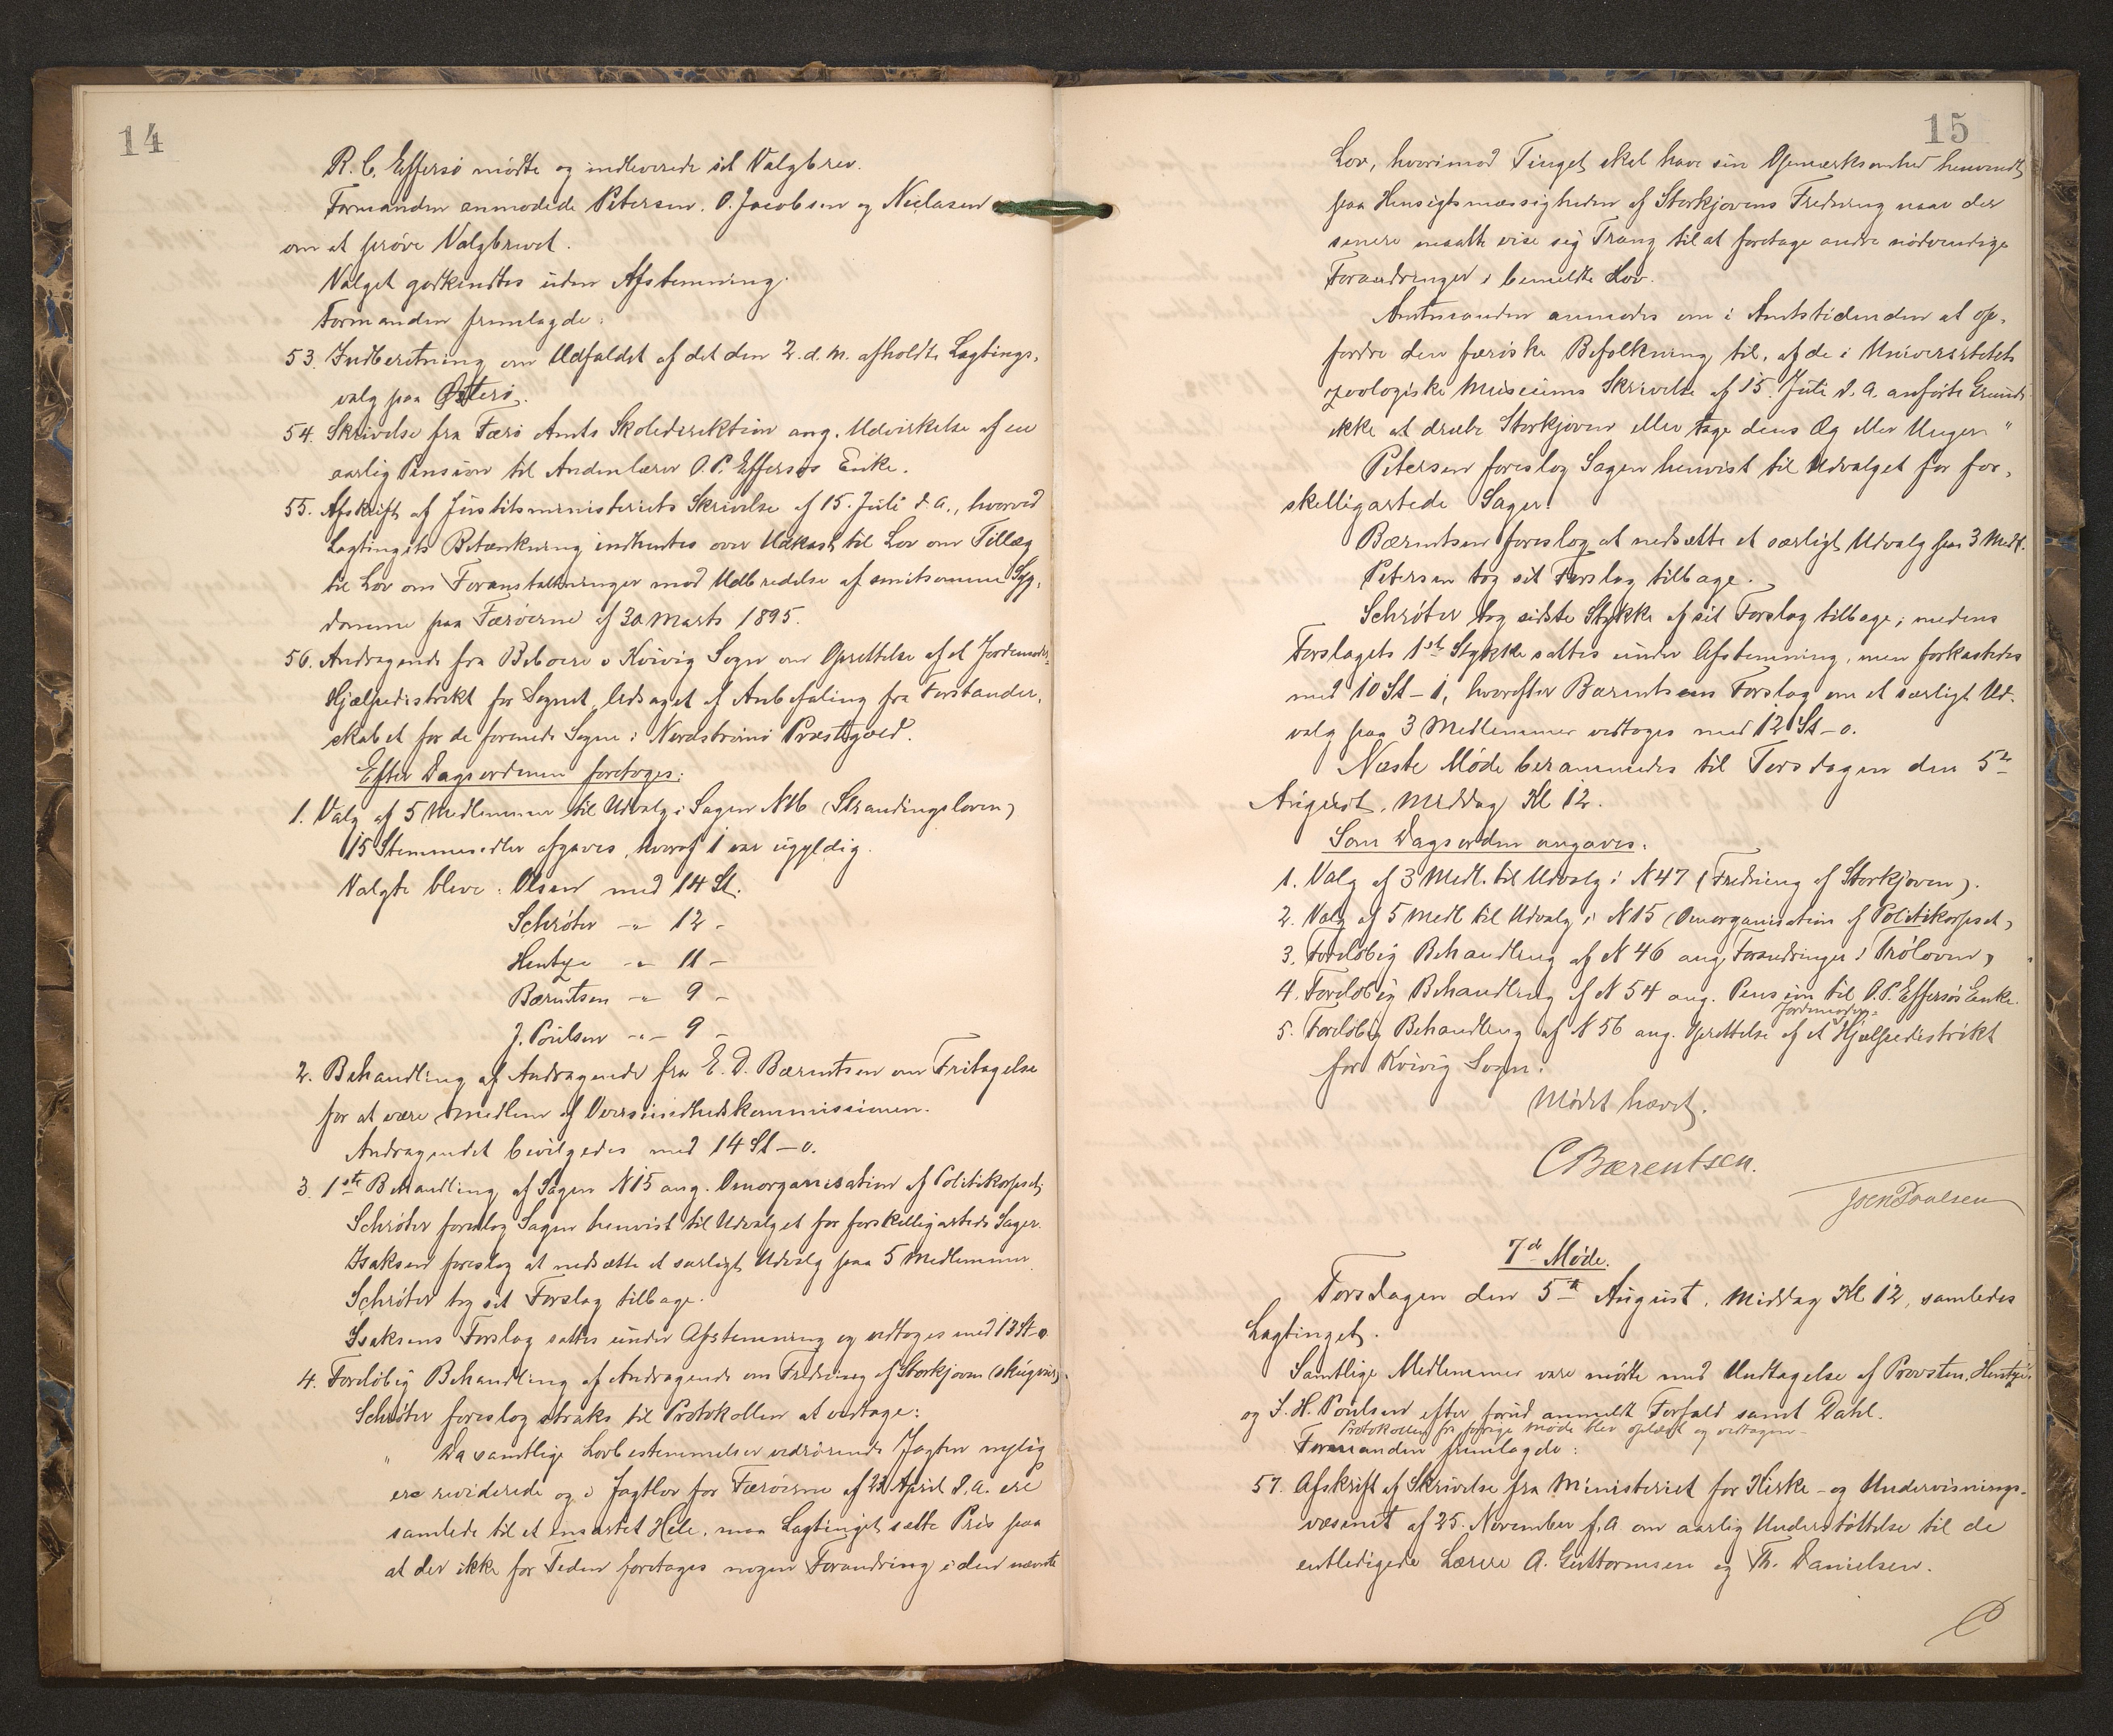 14
R. C. Effersø mødte og indleverede sit Valgbrev.
Formanden anmodede Petersen, O. Jacobsen og Niclasen
om at prøve Valgbrevet.
Valget godkendtes uden Afstemning.
Formanden fremlagde:
53. Indberetning om Udfaldet af det den 2. d. M. afholdte Lagtings-
valg paa Østerø.
54. Skrivelse fra Færø Amts Skoledirektion ang. Udvirkelse af en
aarlig Pension til Andenlærer O. P. Effersøs Enke.
55. Afskrift af Justitsministeriets Skrivelse af 15. Juli d. A., hvorved
Lagtingets Betænkning indhentes over Udkast til Lov om Tillæg
til Lov om Foranstaltninger mod Udbredelse af smitsomme Syg-
domme paa Færøerne af 30 Marts 1895.
56. Andragende fra Beboere i Kvivig Sogn om Oprettelse af et Jordemoder-
Hjælpedistrikt for Sognet, ledsaget af Anbefaling fra Forstander-
skabet for de forenede Sogne i Nordstrømø Præstegæld.
Efter Dagsordenen foretoges:
1. Valg af 5 Medlemmer til Udvalg i Sagen N 16 (Strandingsloven)
15 Stemmesedler afgaves, hvoraf 1 var ugyldig.
Valgte bleve: Olsen med 14 St.
Schrøter -"- 12 -
Hentze -"- 11 -
Bærentsen -"- 9 -
J. Poulsen -"- 9 -
2. Behandling af Andragende fra E. D. Bærentsen om Fritagelse
for at være Medlem af Oversundhedskommissionen.
Andragendet bevilgedes med 14 St - 0.
3. 1ste Behandling af Sagen N 15 ang. Omorganisation af Politikorpset,
Schrøter foreslog Sagen henvist til Udvalget for forskelligartede Sager.
Isaksen foreslog at nedsætte et særligt Udvalg paa 5 Medlemmer.
Schrøter tog sit Forslag tilbage.
Isaksens Forslag sattes under Afstemning og vedtoges med 13 St - 0.
4. Foreløbig Behandling af Andragende om Fredning af Storkjoven (skúgvur)
Schrøter foreslog straks til Protokollen at vedtage:
" Da samtlige Lovbestemmelser vedrørende Jagten nylig
ere reviderede og i Jagtlov for Færøerne af 23 April d. A. ere
samlede til et ensartet Hele, maa Lagtinget sætte Pris paa
at der ikke for Tiden foretages nogen Forandring i den nævnte
15
Lov, hvorimod Tinget skal have sin Opmærksomhed henvendt
paa Hensigtsmæssigheden af Storkjovens Fredning naar der
senere maatte vise sig Trang til at foretage andre nødvendige
Forandringer i bemeldte Lov.
Amtmanden anmodes om i Amtstidenden at op-
fordre den færøske Befolkning til, af de i Universitetets
zoologiske Museums Skrivelse af 15. Juli d. A. anførte Grunde
ikke at dræbe Storkjoven eller tage dens Æg eller Unger "
Petersen foreslog Sagen henvist til Udvalget for for-
skelligartede Sager.
Bærentsen foreslog at nedsætte et særligt Udvalg paa 3 Medl.
Petersen tog sit Forslag tilbage.
Schrøter tog sidste Stykke af sit Forslag tilbage; medens
Forslagets 1ste Stykke sattes under Afstemning, men forkastedes
med 10 St - 1, hvorefter Bærentsens Forslag om et særligt Ud-
valg paa 3 Medlemmer vedtoges med 12 St - 0.
Næste Møde berammedes til Torsdagen den 5te
August, Middag Kl 12.
Som Dagsorden angaves:
1. Valg af 3 Medl. til Udvalg i N 47 (Fredning af Storkjoven).
2. Valg af 5 Medl til Udvalg i N 15 (Omorganisation af Politikorpset)
3. Foreløbig Behandling af N 46 ang. Forandringer i Trøloven,
4. Foreløbig Behandling af N 54 ang. Pension til O. P. Effersøs Enke.
Jordemoder-
5. Foreløbig Behandling af N 56 ang. Oprettelse af et Hjælpedistrikt
for Kvivig Sogn.
Mødet hævet.
C Bærentsen.
Joen Poulsen
7de Møde.
Torsdagen den 5te August, Middag Kl 12, samledes
Lagtinget.
Samtlige Medlemmer vare mødte med Undtagelse af Provsten, Hentze
og S. H. Poulsen efter forud anmeldt Forfald samt Dahl.
Protokollen fra forrige Møde blev oplæst og vedtagen.
Formanden fremlagde:
57. Afskrift af Skrivelse fra Ministeriet for Kirke- og Undervisnings-
væsenet af 25. November f. A om aarlig Understøttelse til de
entledigede Lærere A. Guttormsen og Th. Danielsen.